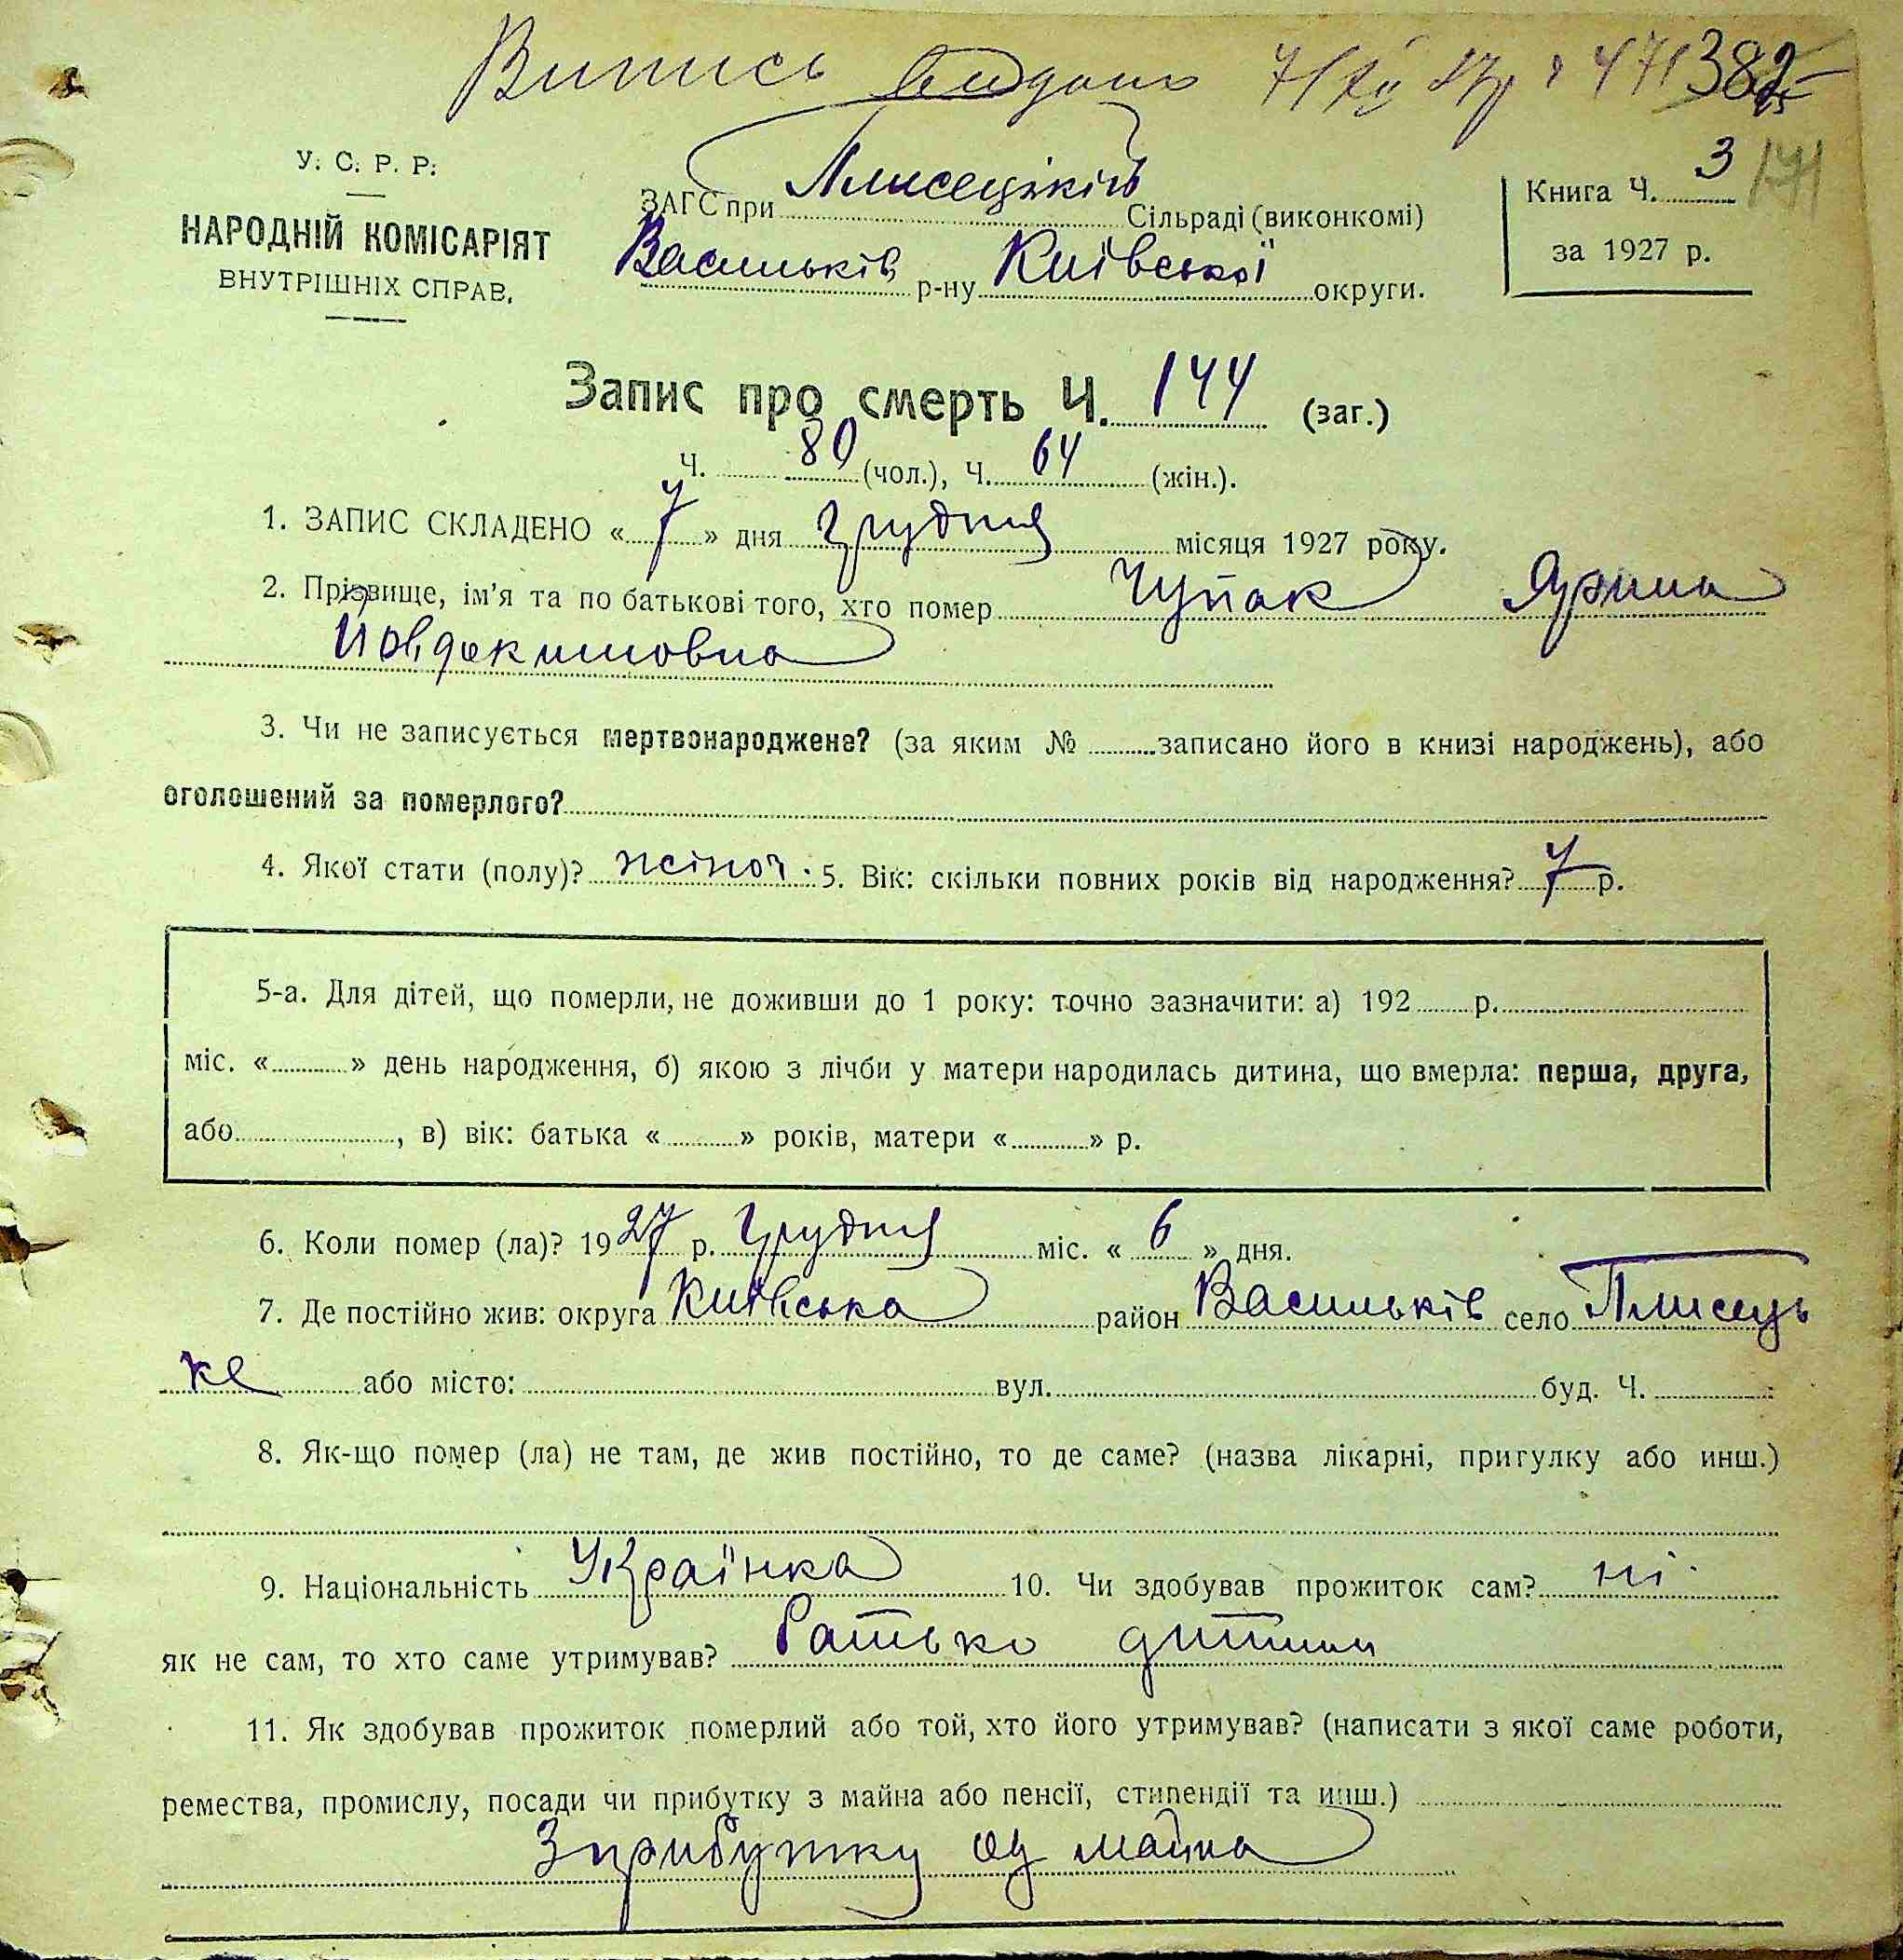 Випись видано 7/XII 27р 471 382
У. С. Р. Р.
НАРОДНІЙ КОМІСАРІЯТ
ВНУТРІШНІХ СПРАВ.
ЗАГС при Плисецькій Сільраді (виконкомі)
Васильків р-ну Київської округи.
Книга Ч. 3 171
за 1927 р.
Запис про смерть Ч. 144 (заг.)
Ч. 80 (чол.), Ч. 64 (жін.).
1. ЗАПИС СКЛАДЕНО « 7 » дня грудня місяця 1927 року.
2. Прізвище, ім'я та по батькові того, хто помер Чупак Ярина
Йовдокимовна
3. Чи не записується мертвонароджене? (за яким № записано його в книзі народжень), або
оголошений за померлого?
4. Якої стати (полу)? жіночі. 5. Вік: скільки повних років від народження? 7 р.
5-а. Для дітей, що померли, не доживши до 1 року: точно зазначити: а) 192 р.
міс. « » день народження, б) якою з лічби у матери народилась дитина, що вмерла: перша, друга,
або , в) вік: батька « » років, матери « » р.
6. Коли помер (ла)? 1927 р. Грудня міс. « 6 » дня.
7. Де постійно жив: округа Київська район Васильків село Плисець
ке або місто: вул. буд. Ч.
8. Як-що помер (ла) не там, де жив постійно, то де саме? (назва лікарні, пригулку або инш.)
9. Національність Українка 10. Чи здобував прожиток сам? ні
як не сам, то хто саме утримував? Батько дитини
11. Як здобував прожиток померлий або той, хто його утримував? (написати з якої саме роботи,
ремества, промислу, посади чи прибутку з майна або пенсії, стипендії та инш.)
З прибутку од майна